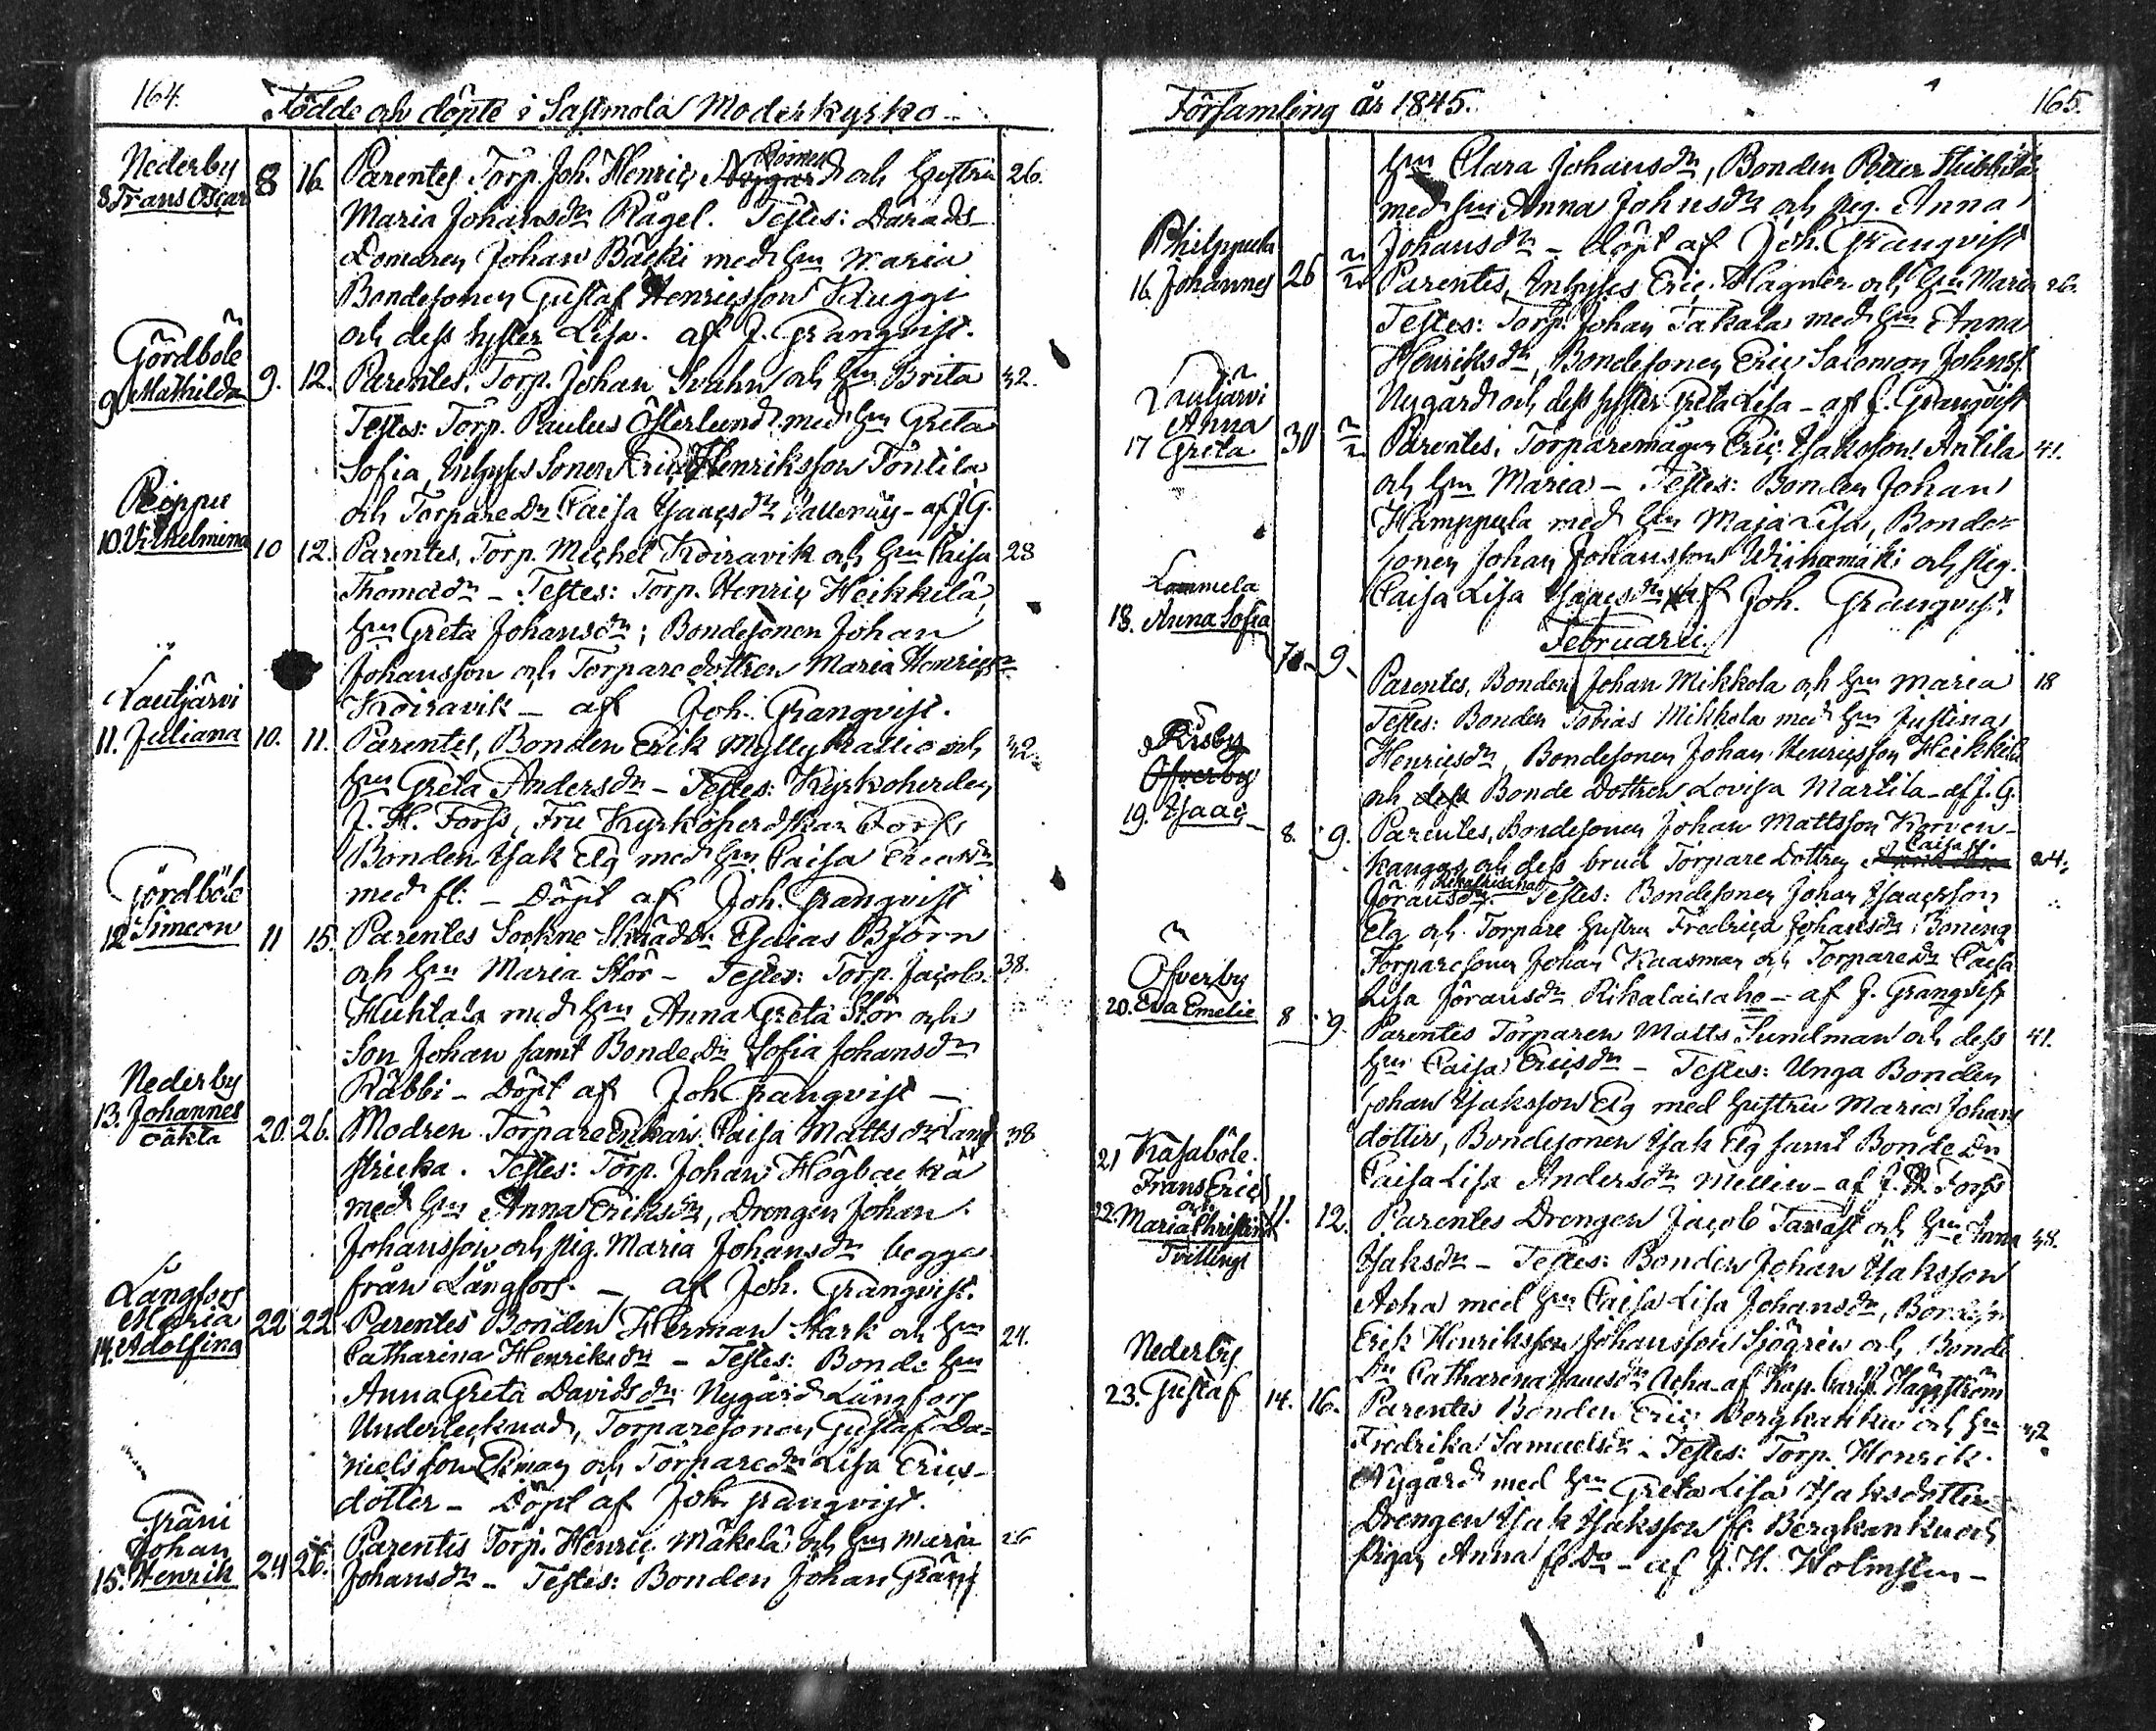 164.
Födde och döpte i Sastmola Moderkyrko-
Nederby
8 Frans Oscar 8 16. Parentes Torp. Joh. Henric Nygård och hustru 26.
Maria Johansdr Rågel. Testes: Danads-
Domaren Johan Bäcki med hu Maria
Bondesonen Gustaf Henricsson Knuggi
och dess syster Lisa. af J. Granqvist.
Gördböle
9 Mathilda 9. 12. Parentes, Torp. Johan Svahn och hu Brita 32.
Testes: Torp. Paulus Österlund med hu Greta
Sofia, Inhyses Sonen Eric Henriksson Tontila
och Torpare Dr Caisa Isaacsdr - af J G.
Peippu
10. Vilhelmina 10 12. Parentes, Torp. Michel Koiravik och hu Caisa 28
Thomasdr - Testes: Torp. Henric Heikkilä,
hu Greta Johansdr; Bondesonen Johan
Johansson och Torparedottren Maria Henricsdr
Koiravik - af Joh. Granqvist.
Lautjärvi
11. Juliana 10. 11. Parentes, Bonden Erik Myllykallio och 32
hu Greta Andersdr - Testes: Kyrkoherden
J. H. Forss, Fru Kyrkoherdskan Forss
Bonden Isak Elg med hu Caisa Ericsdr
med fl: - Döpt af Joh. Granqvist
Gördböle
12 Simeon 11 15. Parentes Sockne Skrädd. Esaias Björn
och hu Maria Stör - Testes: Torp. Jacob 38.
Huhtala med hu Anna Greta Stör och
Son Johan samt Bonde Dr Sofia Johansdr
Räbbi - Döpt af Joh Granqvist -
Nederby
13. Johannes
oäkta 20. 26. Modren Torpare Enkan Caisa Mattsdr Land 38
stricka. Testes: Torp. Johan Högbacka
med hu Anna Eriksdr, Drengen Johan
Johansson och pig. Maria Johansdr begge
från Långfors - af Joh. Granqvist.
Långfors
Maria
14. Adolfina 22 22 Parentes Bonden Herman Stark och hu 24.
Catharina Henriksdr - Testes: Bonde hu
Anna Greta Davidsdr Nygård Långfors
Undertecknad, Torparesonen Gustaf Da-
nielsson och Torparedr Lisa Erics-
dotter - Döpt af Joh. Granqvist.
Gräni
Johan
15. Henrik 24 26. Parentes Torp. Henric Mäkelä och hu Maria 26
Johansdr - Testes: Bonden Johan Gräni
Församling år 1845. 165.
hu Clara Johansdr, Bonden Petter
med hu Anna Johnsdr och pig. Anna
Johansdr - döpt af Joh. Granqvist
Philppula
16. Johannes 26 2/2 Parentes, Inhyses Eric Hagner och hu Maria 26.
Testes: Torp. Johan Takala med hu Anna
Henriksdr, Bondesonen Eric Salomon Johnss.
Nygård och dess syster Greta Lisa - af J. Granqvist
Lautjärvi
Anna
17 Greta 30 2/2 Parentes, Torparemågen Eric Isaksson Antila 41.
och hu Maria - Testes: Bonden Johan
Hamppula med hu Maja Lisa, Bonde-
sonen Johan Johansson Wiinamäki och pig.
Caisa Lisa Isaacsdr af Joh. Granqvist.
Februarii
Lammela
18. Anna Sofia 7. 9. Parentes, Bonden Johan Mikkola och hu Maria 18
Testes: Bonden Tobias Mikkola med hu Justina
Henricsdr, Bondesonen Johan Henricsson Heikkilä
och dess Bonde Dottren Lovisa Martila - af J. G.
Risby
Ofverby
19. Isaac - 8. 9. Parentes, Bondesonen Johan Mattsson Korven-
kangas och dess brud Torpare Dottren Caisa 24.
Jöransdr. Testes: Bondesonen Johan Isaacsson
Elg och Torpare hustru Fredrica Johansdr Boning
Torparesonen Johan Kaasman och Torparedr Caisa
Lisa Jöransdr Rikalaisaho - af J. Granqvist
Ofverby
20. Eva Emelie 8 9. Parentes Torparen Matts Sundman och dess 41.
hu Caisa Ericsdr - Testes: Unga Bonden
Johan Isaksson Elg med hustru Maria Johans
dotter, Bondesonen Isak Elg samt Bonde Dr
Caisa Lisa Andersdr Mellin - af J. H. Forss
21 Kasaböle.
Frans Eric
och
22. Maria Christina 11. 12. Parentes Drengen Jacob Tavast och hu Anna 38.
Tvillingr
Isaksdr - Testes: Bonden Johan Isaksson
Acha med hu Caisa Lisa Johansdr, Bondesn
Erik Henriksson Johansson Sjögren och Bonde
Dr Catharina Isaacsdr Acha - af Kap. Carl P. Häggström
Nederby
23. Gustaf 14. 16. Parentes Bonden Eric Bergkankin och hu 32
Fredrika Samuelsdr - Testes: Torp. Henrik
Nygård med hu Greta Lisa Isaksdotter
Drengen Isak Isaksson fr. Bergkankin och
pigan Anna fr. Do - af J. H. Holmsten -